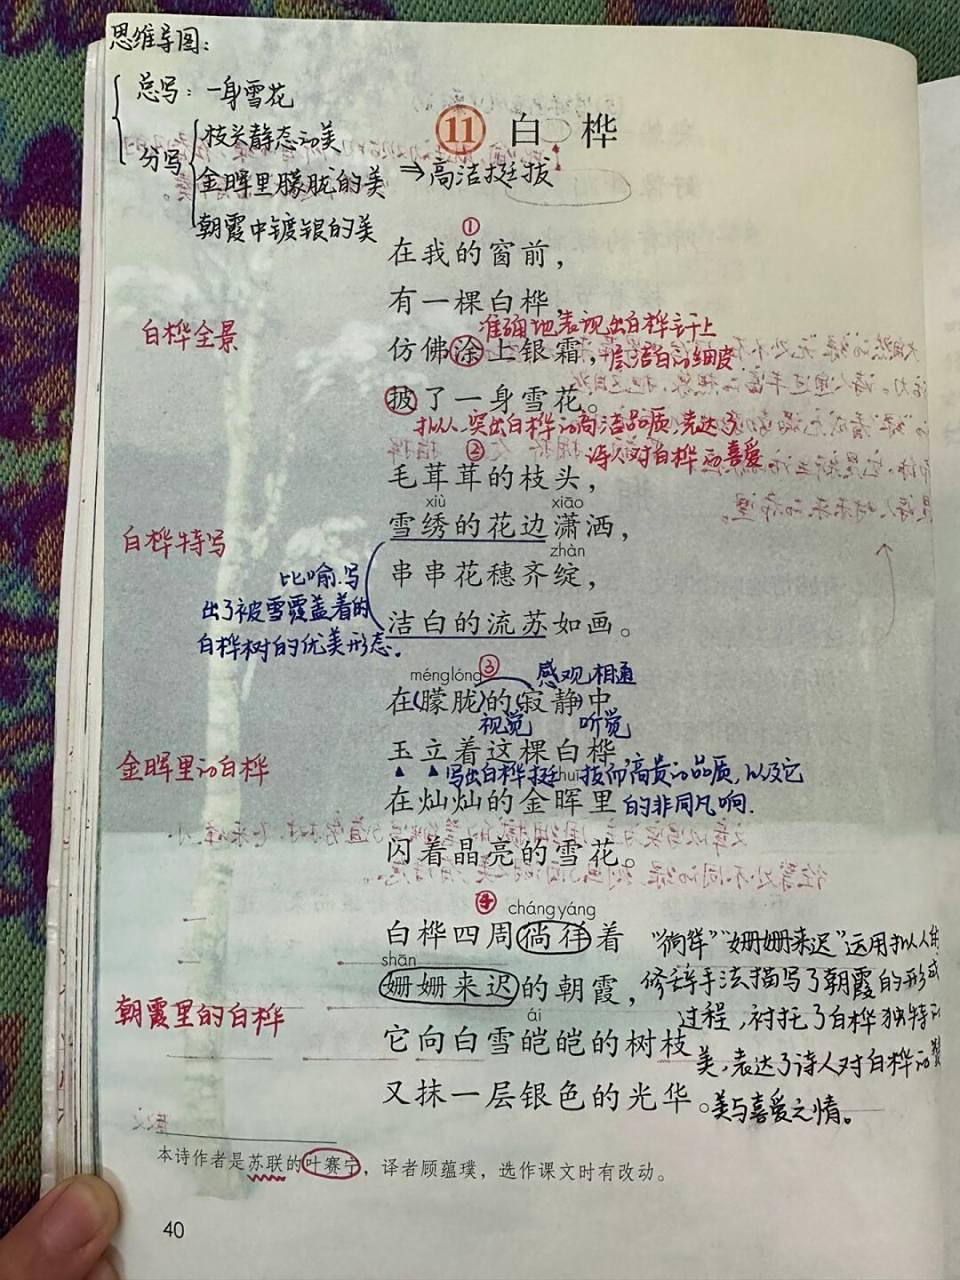 思维导图：
总写：一身雪花
分写
枝头静态的美
金晖里朦胧的美
朝霞中镀银的美
⇒高洁挺拔
11 白桦
①
在我的窗前，
有一棵白桦，
仿佛涂上银霜，
披了一身雪花。
白桦全景
准确地表现出白桦主干上
层洁白的细皮
拟人，突出白桦的高洁品质，表达了
诗人对白桦的喜爱
②
毛茸茸的枝头，
xiù xiāo
雪绣的花边潇洒，
zhàn
串串花穗齐绽，
洁白的流苏如画。
白桦特写
比喻.写
出了被雪覆盖着的
白桦树的优美形态.
③
ménglóng
感观相通
在(朦胧)的(寂静)中
视觉 听觉
玉立着这棵白桦，
写出白桦挺拔而高贵的品质,以及它
huī
在灿灿的金晖里
的非同凡响.
闪着晶亮的雪花。
金晖里的白桦
④
chángyáng
白桦四周徜徉着
shān
姗姗来迟的朝霞，
ái
它向白雪皑皑的树枝
又抹一层银色的光华。
朝霞里的白桦
"徜徉""姗姗来迟"运用拟人的
修辞手法描写了朝霞的形成
过程,衬托了白桦独特的
美,表达了诗人对白桦的赞
美与喜爱之情。
本诗作者是苏联的叶赛宁，译者顾蕴璞，选作课文时有改动。
40